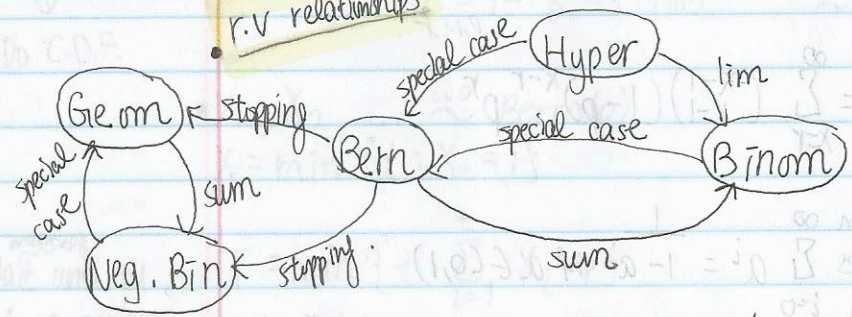 r.v relationships
Hyper
special case
lim
Geom
stopping
Bern
special case
Binom
special case
sum
Neg. Bin
stopping.
sum